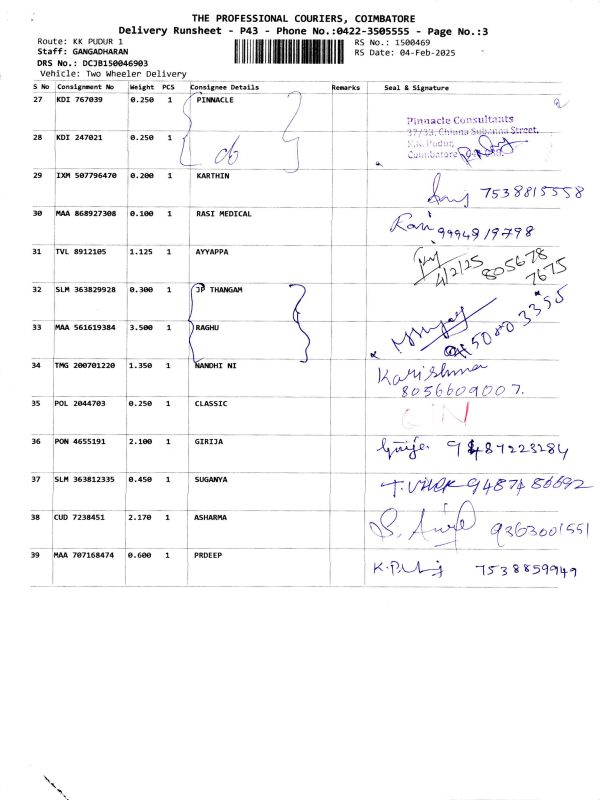 THE PROFESSIONAL COURIERS, COIMBATORE
Delivery Runsheet - P43 - Phone No.:0422-3505555 - Page No.:3
Route: KK PUDUR 1 RS No.: 1500469
Staff: GANGADHARAN RS Date: 04-Feb-2025
DRS No.: DCJB150046903
Vehicle: Two Wheeler Delivery
S No Consignment No Weight PCS Consignee Details Remarks Seal & Signature
27 KDI 767039 0.250 1 PINNACLE
Pinnacle Consultants
37/33, Chinna Subanna Street,
K.K. Pudur,
28 KDI 247021 0.250 1
29 IXM 507796470 0.200 1 KARTHIN 7538815558
30 MAA 868927308 0.100 1 RASI MEDICAL Rani 9994919798
31 TVL 8912105 1.125 1 AYYAPPA 4/2/25 805678
7675
32 SLM 363829928 0.300 1 JP THANGAM
33 MAA 561619384 3.500 1 RAGHU
34 TMG 200701220 1.350 1 NANDHI NI Karishma
8056609007.
35 POL 2044703 0.250 1 CLASSIC
36 PON 4655191 2.100 1 GIRIJA 9487223284
37 SLM 363812335 0.450 1 SUGANYA 9487486692
38 CUD 7238451 2.170 1 ASHARMA 9363001551
39 MAA 707168474 0.600 1 PRDEEP 7538859949